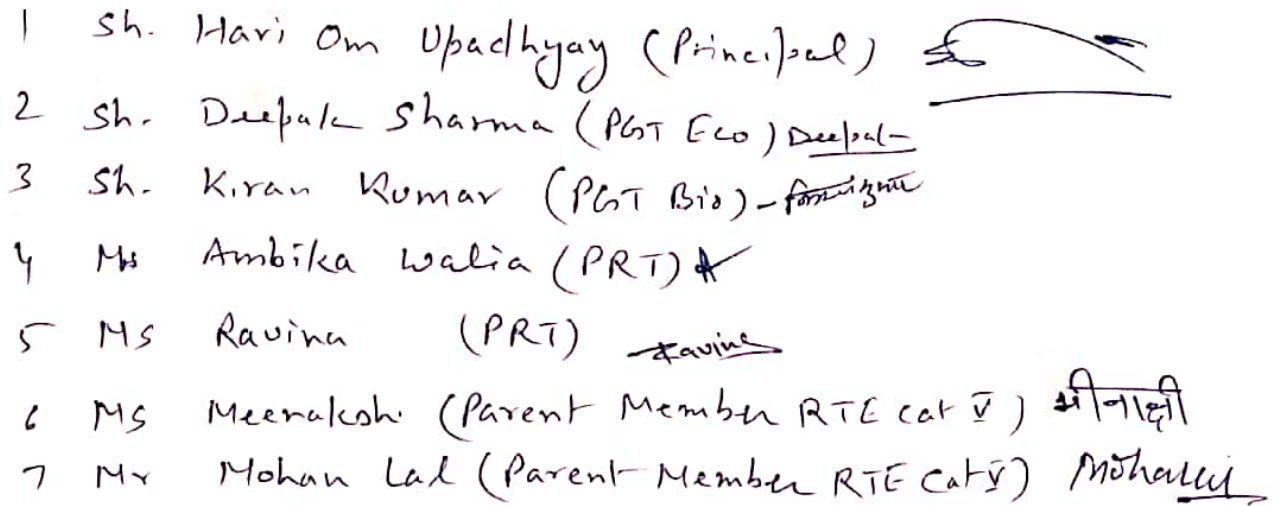 1 Sh. Hari Om Upadhyay (Principal)
2 Sh. Deepak Sharma (PGT Eco) Deepak
3 Sh. Kiran Kumar (PGT Bio) -
4 Ms Ambika Walia (PRT)
5 Ms Ravina (PRT) Ravina
6 Ms Meenakshi (Parent Member RTE Cat V) मीनाक्षी
7 Mr Mohan Lal (Parent Member RTE Cat V) Mohanlal